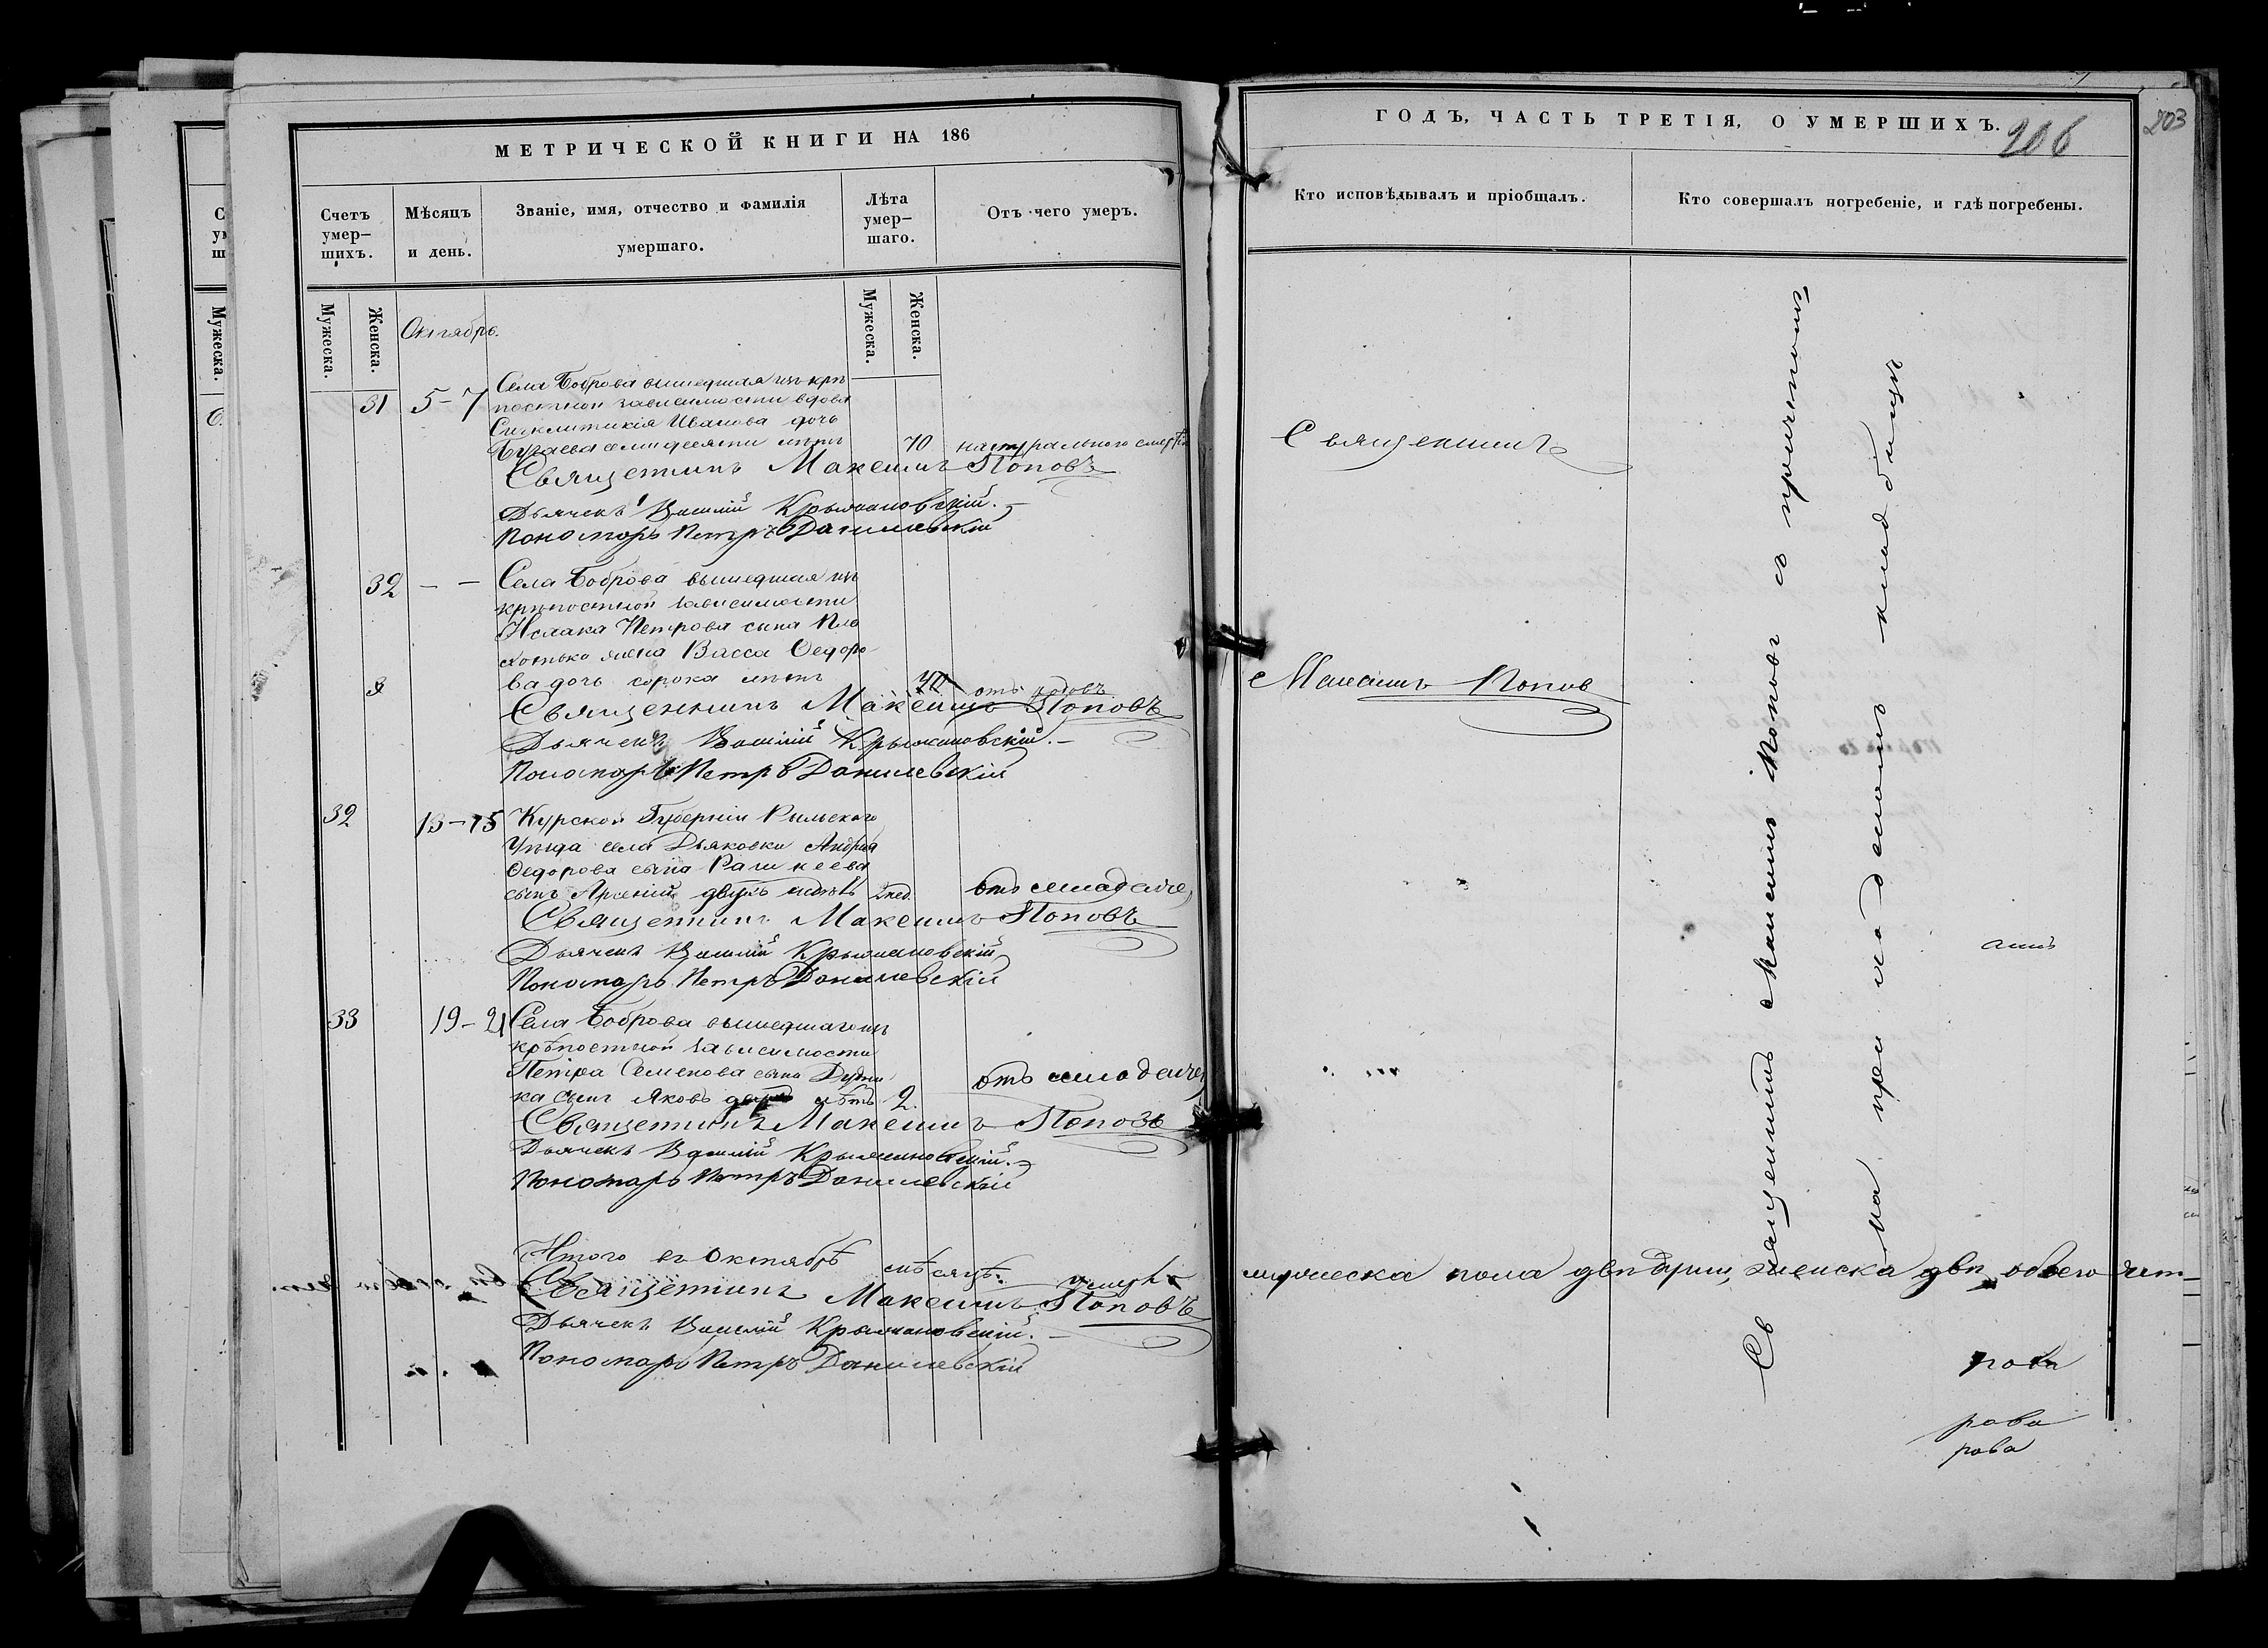 МЕТРИЧЕСКОЙ КНИГИ НА 186
Счетъ умер–шихъ.
Мѣсяцъ и день.
Званіе, имя, отчество и фамилія умершаго.
Лѣта умер–шаго.
Отъ чего умеръ.
Мужеска.
Женска.
Мужеска.
Женска.
Октябрь.
31 5–7 Села Боброва вышедшая изъ крѣ
постной зависимости вдова
Синклитикія Иванова дочь
семидесяти лѣтъ 70 натуральною смерт
Священникъ Максимъ Поповъ
Дьячекъ Василій Крыжановскій.
Пономарь Петръ Данилевскій
32 – – Села Боброва вышедшая изъ
крѣпостной зависимости
Исаака Петрова сына Пло
хотько жена Васса Ѳедоро
ва дочь сорока лѣтъ 40 отъ родовъ
Священникъ Максимъ Поповъ
Дьячекъ Василій Крыжановскій.–
Пономарь Петръ Данилевскій
32 13–15 Курской Губерніи Рыльскаго
Уѣзда села Дьяковки Андрея
Ѳедорова сына
сынъ Арсеній двухъ недѣль 2 нед. отъ младенче
Священникъ Максимъ Поповъ
Дьячекъ Василій Крыжановскій
Пономарь Петръ Данилевскій
33 19–21 Села Боброва вышедшаго изъ
крѣпостной зависимости
Петра Семенова сына Дудни
ка сынъ Яковъ двухъ лѣтъ 2. отъ младенче
Священникъ Максимъ Поповъ
Дьячекъ Василій Крыжановскій.
Пономарь Петръ Данилевскій
Итого въ Октябрѣ мѣсяцѣ умерло
Священникъ Максимъ Поповъ
Дьячекъ Василій Крыжановскій.–
Пономарь Петръ Данилевскій
ГОДЪ, ЧАСТЬ ТРЕТІЯ, О УМЕРШИХЪ.
206
203
Кто исповѣдывалъ и пріобщалъ.
Кто совершалъ погребеніе, и гдѣ погребены.
Священникъ
Максимъ Попов
Священникъ Максимъ Поповъ съ причетом
на приходскомъ кладбищѣ
мужеска пола два, женска два обоего чет
рова
рова